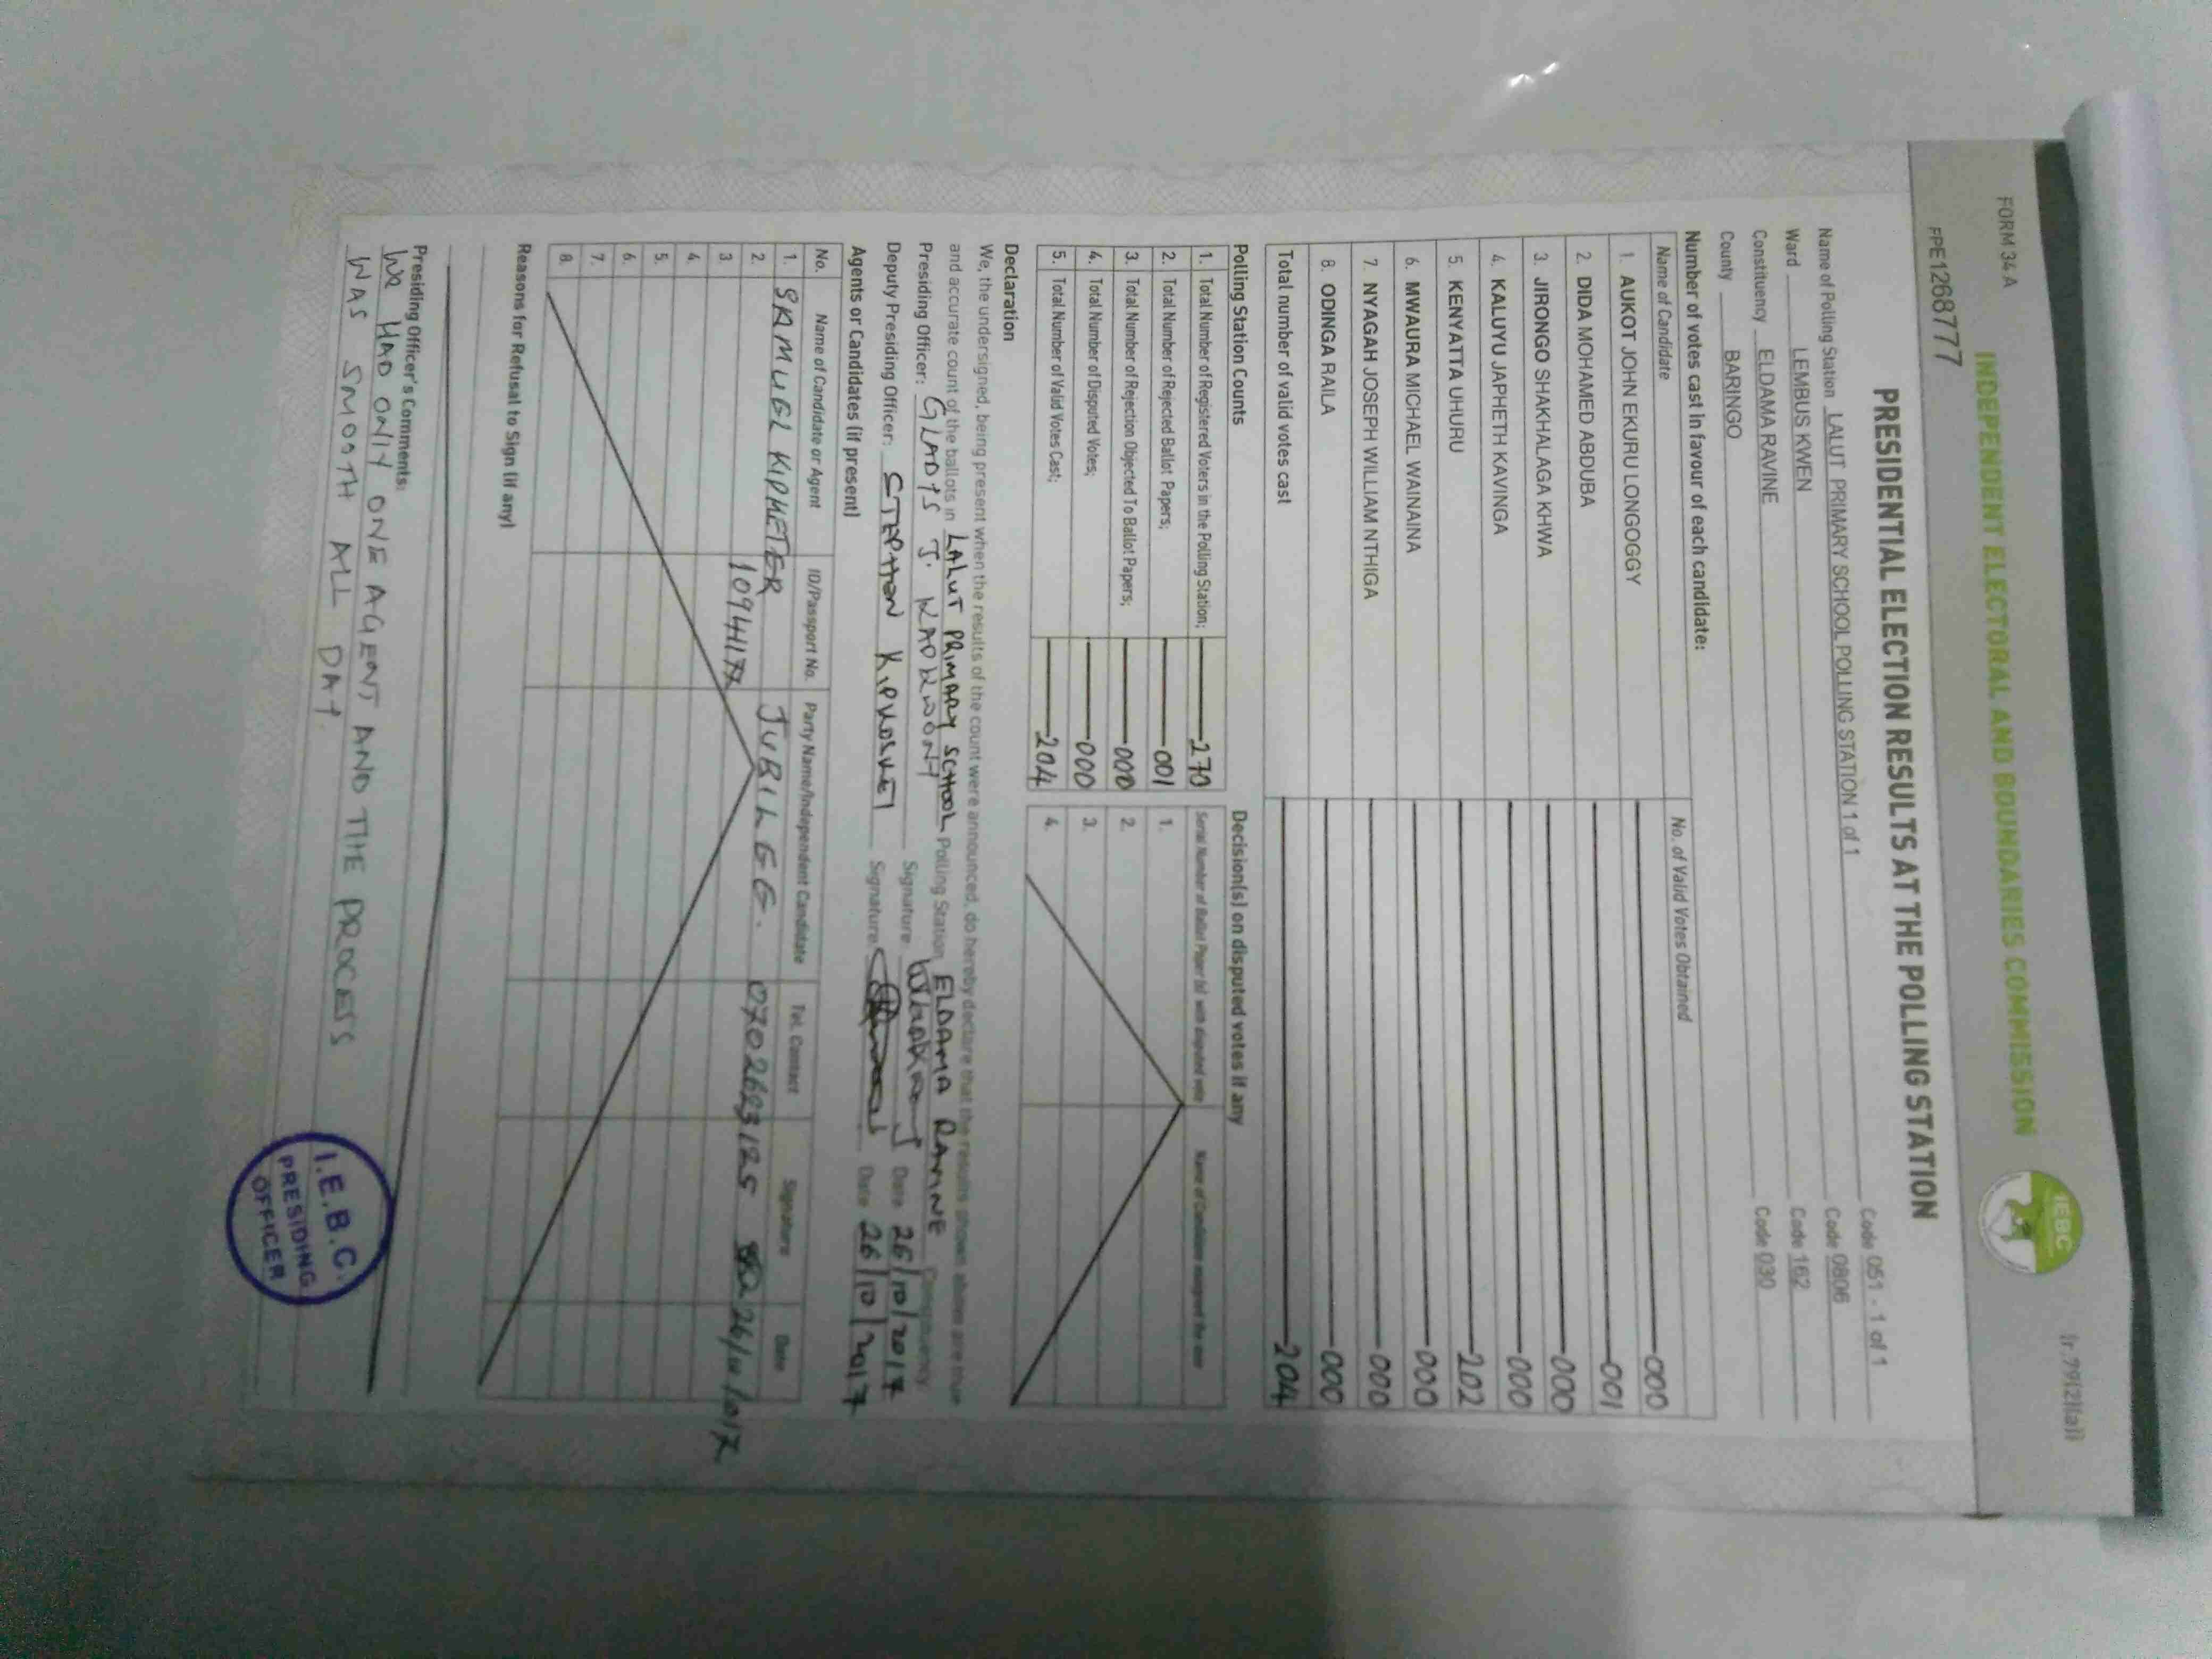 FORM 34 A
INDEPENDENT ELECTORAL AND BOUNDARIES COMMISSION
IEBC
FPE1268777
PRESIDENTIAL ELECTION RESULTS AT THE POLLING STATION
Name of Polling Station LALUT PRIMARY SCHOOL POLLING STATION 1 of 1 Code 051 - 1 of 1
Ward LEMBUS KWEN Code 0806
Constituency ELDAMA RAVINE Code 162
County BARINGO Code 030
Number of votes cast in favour of each candidate:
Name of Candidate No. of Valid Votes Obtained
1. AUKOT JOHN EKURU LONGOGGY 000
2. DIDA MOHAMED ABDUBA 001
3. JIRONGO SHAKHALAGA KHWA 000
4. KALUYU JAPHETH KAVINGA 000
5. KENYATTA UHURU 202
6. MWAURA MICHAEL WAINAINA 000
7. NYAGAH JOSEPH WILLIAM NTHIGA 000
8. ODINGA RAILA 000
Total number of valid votes cast 204
Polling Station Counts Decision(s) on disputed votes if any
1. Total Number of Registered Voters in the Polling Station; 270
2. Total Number of Rejected Ballot Papers; 001
3. Total Number of Rejection Objected To Ballot Papers; 000
4. Total Number of Disputed Votes; 000
5. Total Number of Valid Votes Cast; 204
Serial Number of Ballot Paper (s) with disputed vote Name of Candidate assigned the vote
1.
2.
3.
4.
Declaration
We, the undersigned, being present when the results of the count were announced, do hereby declare that the results shown above are true
and accurate count of the ballots in LALUT PRIMARY SCHOOL Polling Station ELDAMA RAVINE Constituency
Presiding Officer: GLADYS J. Signature Date 26/10/2017
Deputy Presiding Officer: STEPHEN Signature Date 26/10/2017
Agents or Candidates (if present)
No. Name of Candidate or Agent ID/Passport No. Party Name/Independent Candidate Tel. Contact Signature Date
1. SAMUEL KIPKETER JUBILEE.
2.
3
4.
5.
6.
7.
8.
Reasons for Refusal to Sign (if any)
Presiding Officer's Comments:
WE HAD ONLY ONE AGENT AND THE PROCESS
WAS SMOOTH ALL DAY.
I.E.B.C.
PRESIDING
OFFICER